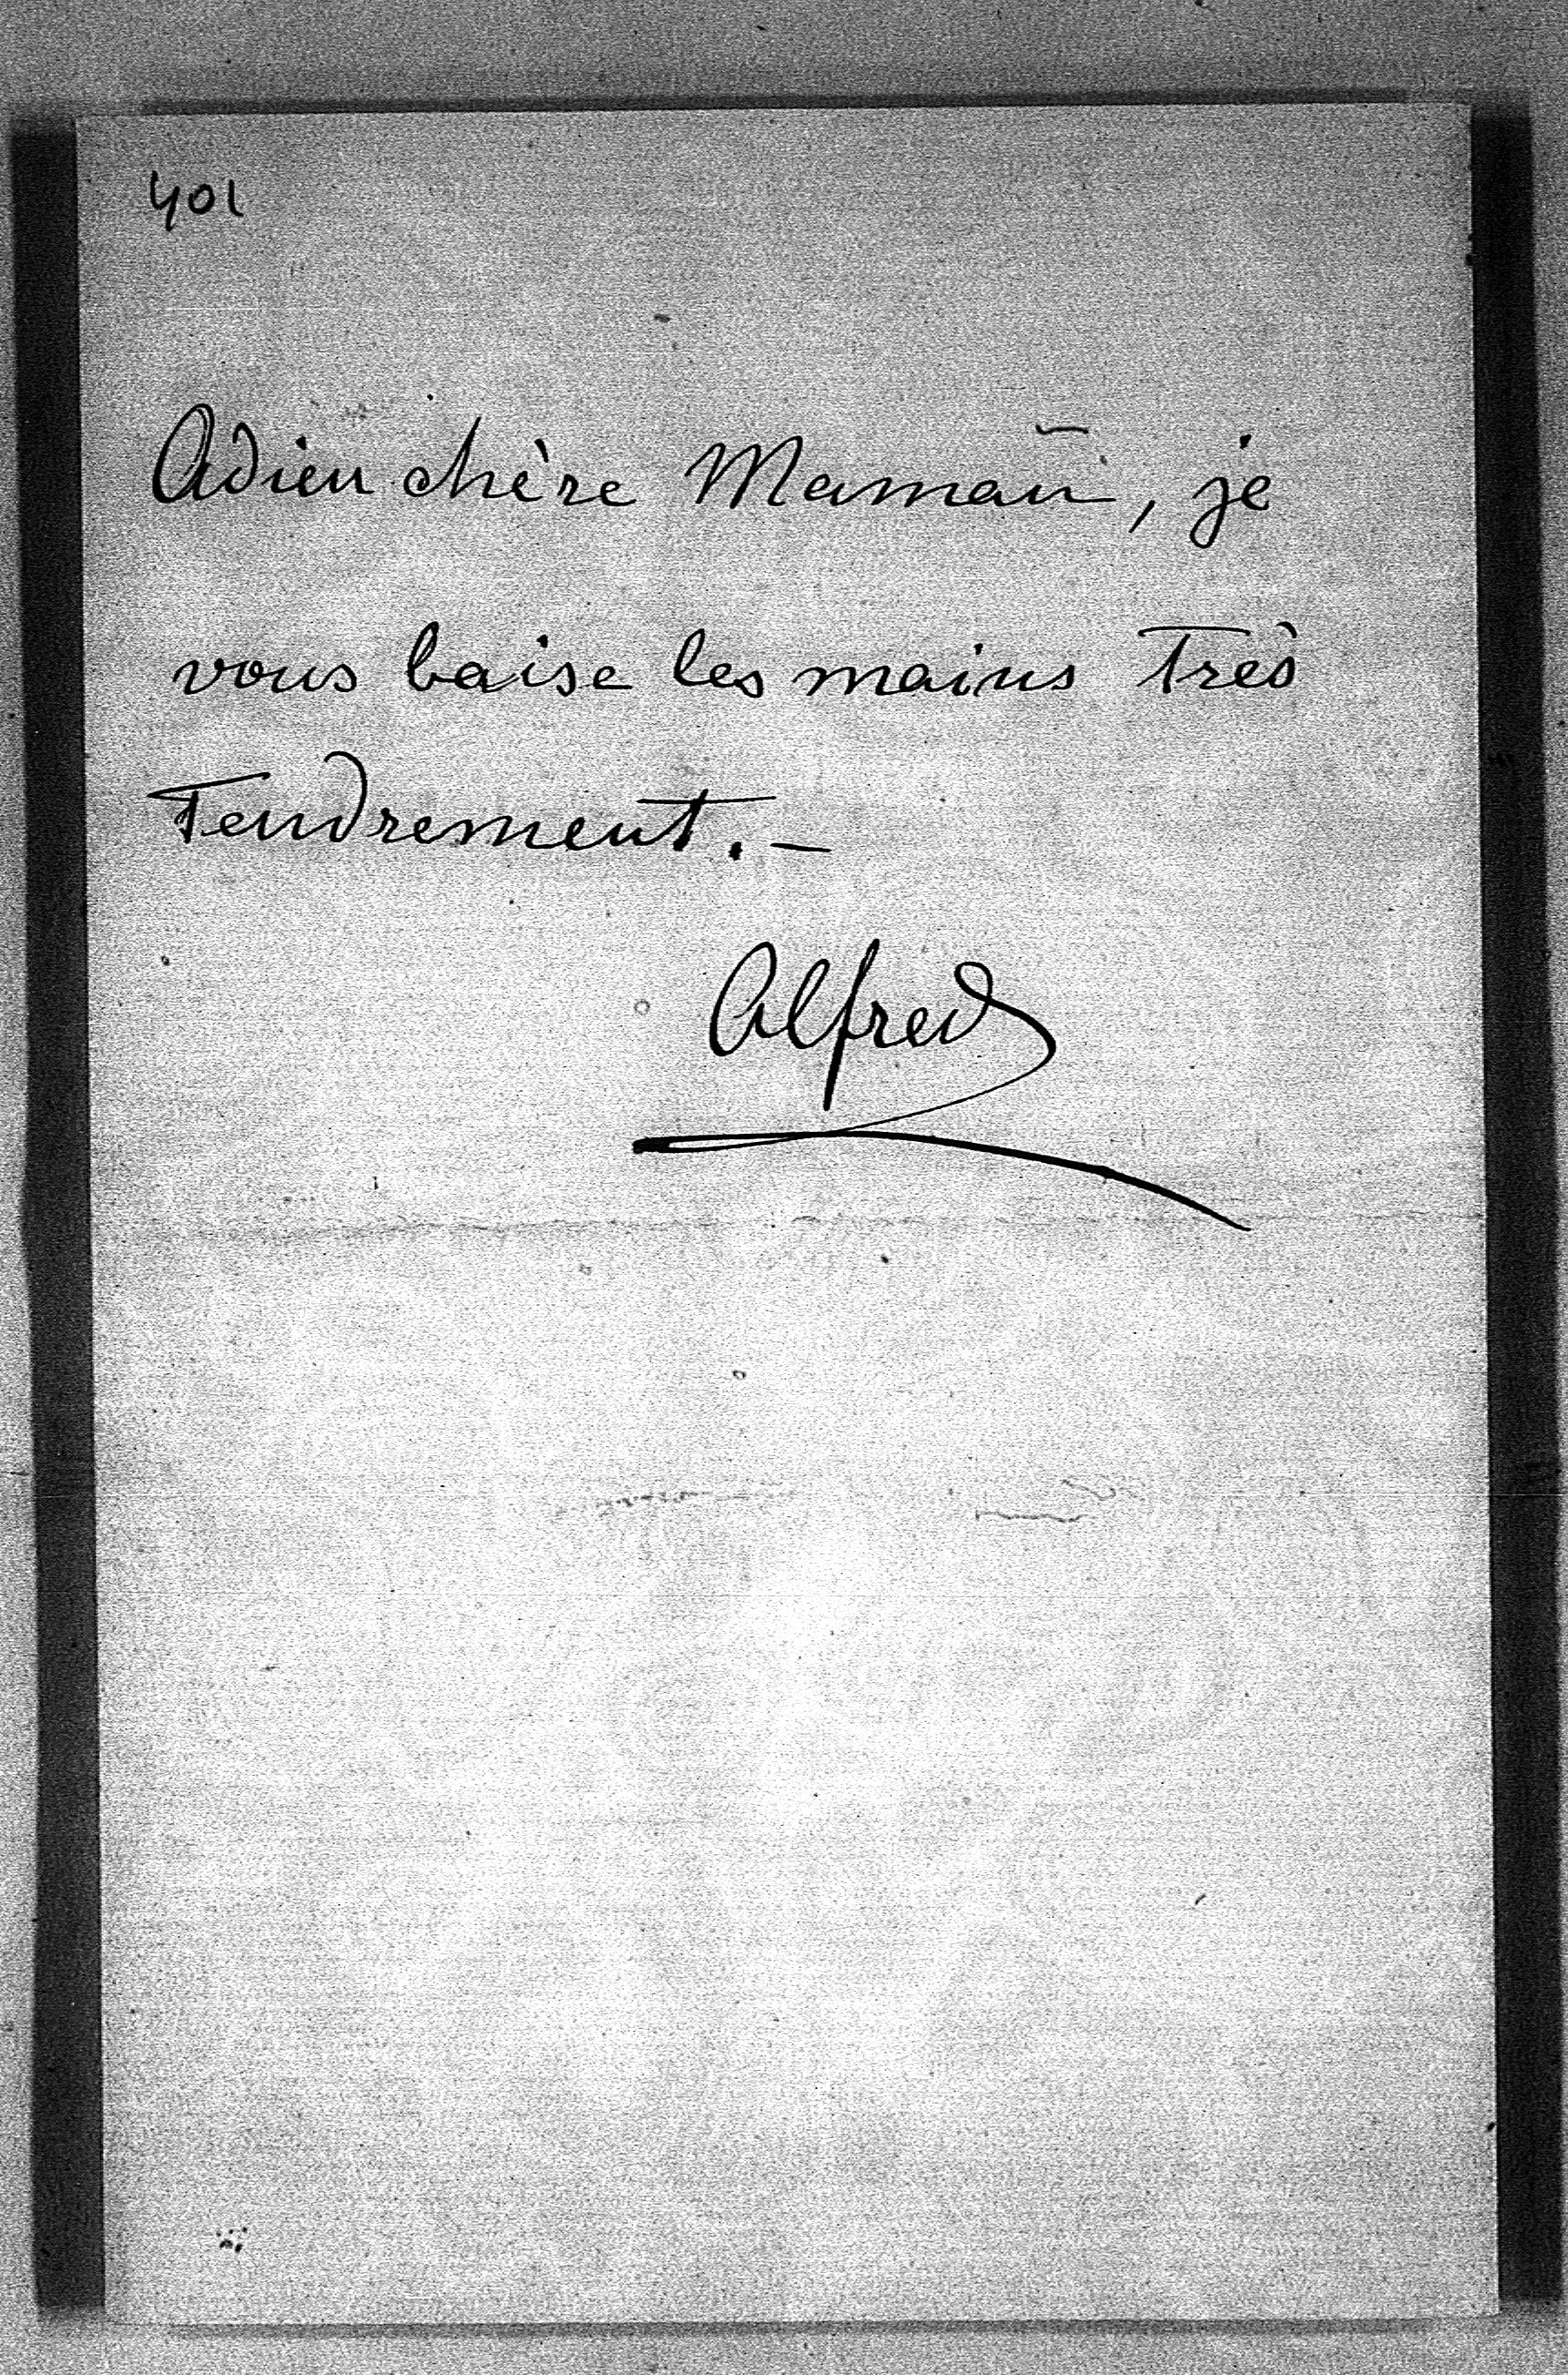 401
Adieu chère Maman, je
vous baise les mains très
tendrement. —
Alfred